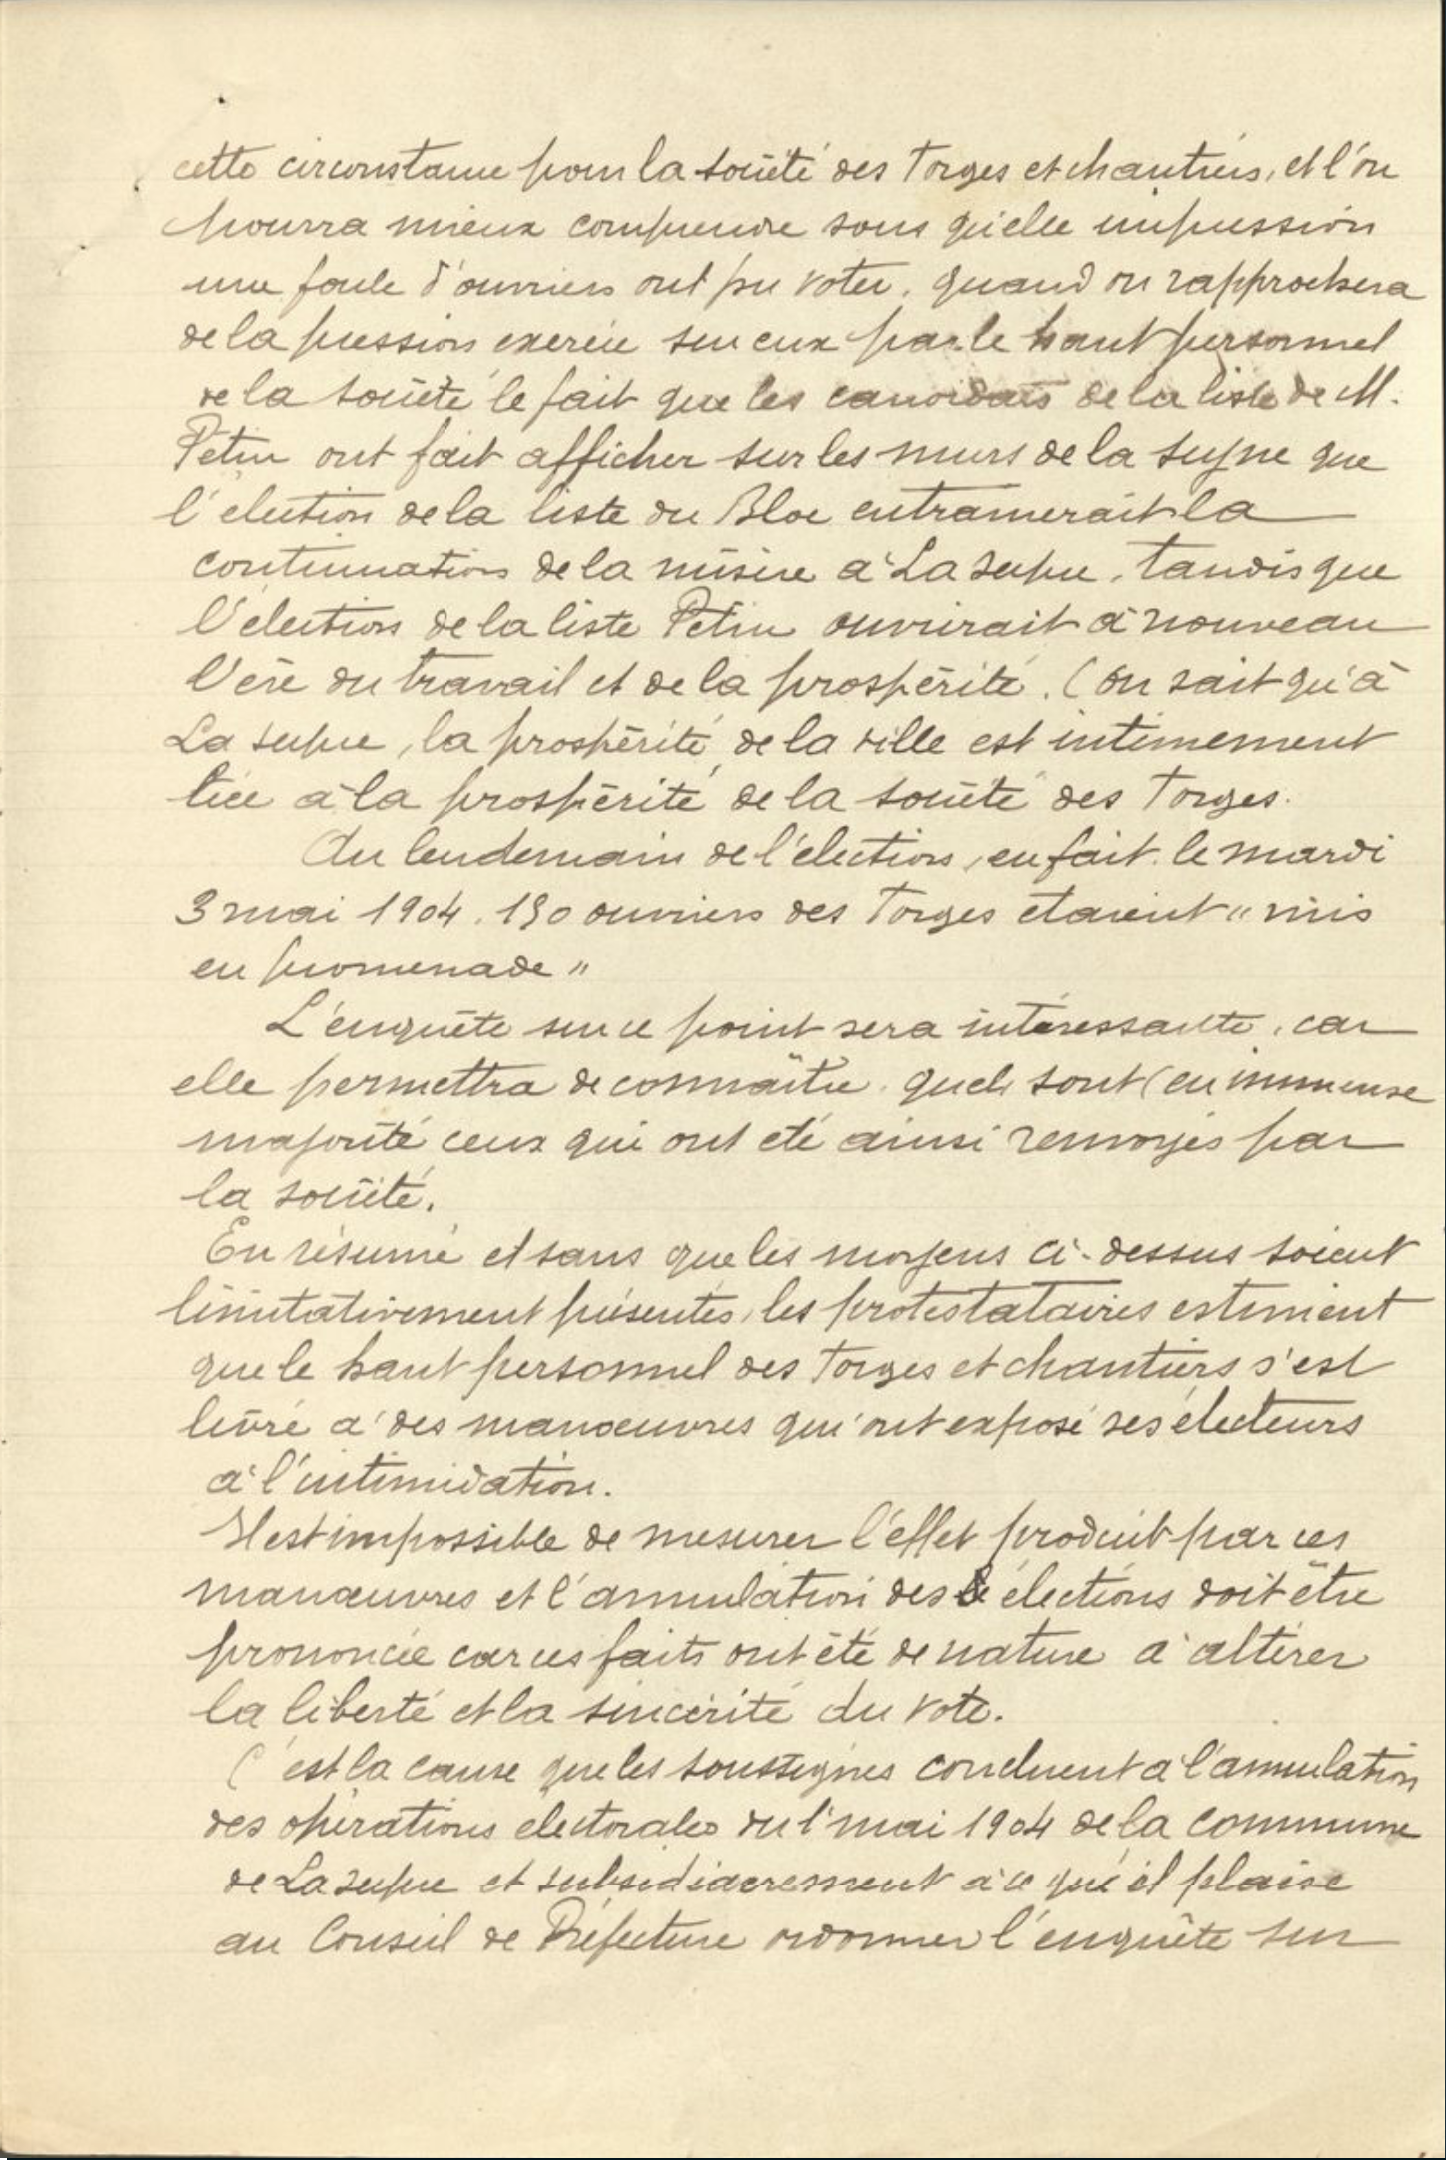 cette circonstance pour la société des Forges et chantiers, et l'on
pourra mieux comprendre sous qu'elle impression
une foule d'ouvriers ont pu voter, quand on rapprochera
de la pression exercée sur eux par le haut personnel
de la société le fait que les candidats de la liste de M.
Pétin ont fait afficher sur les murs de la Seyne que
l'élection de la liste du Bloc entrainerait la
continuation de la misère à La Seyne, tandis que
l'élection de la liste Pétin ouvrirait à nouveau
l'ère du travail et de la prospérité. (On sait qu'à
La Seyne, la prospérité de la ville est intimement
liée à la prospérité de la société des Forges.
Au lendemain de l'élection, en fait le mardi
3 mai 1904. 190 ouvriers des Forges étaient " mis
en promenade "
L'enquête sur ce point sera intéressante, car
elle permettra de connaître quels sont (en immense
majorité ceux qui ont été ainsi renvoyés par
la société.
En résumé et sans que les moyens ci-dessus soient
limitativement présentés, les protestataires estiment
que le haut personnel des Forges et chantiers s'est
livré à des manœuvres qui ont exposé ses électeurs
à l'intimidation.
Il est impossible de mesurer l'effet produit par ces
manœuvres et l'annulation des élections doit être
prononcée car ces faits ont été de nature à altérer
la liberté et la sincérité du vote.
C'est la cause que les soussignés concluent à l'annulation
des opérations électorales du 1er mai 1904 de la commune
de La Seyne et subsidiairement à ce qu'il plaise
au Conseil de Préfecture ordonner l'enquête sur